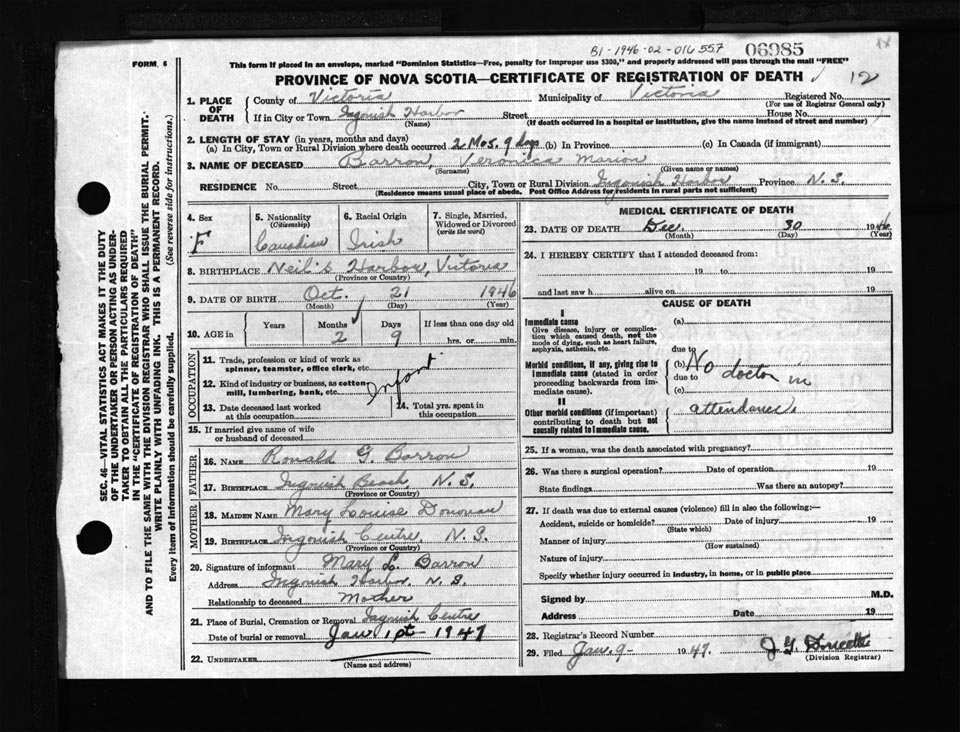 B1-1946-02-016557
06985
FORM 6
This form if placed in an envelope, marked "Dominion Statistics—Free, penalty for improper use $300," and properly addressed will pass through the mail "FREE"
PROVINCE OF NOVA SCOTIA—CERTIFICATE OF REGISTRATION OF DEATH
12
SEC. 46—VITAL STATISTICS ACT MAKES IT THE DUTY
OF THE UNDERTAKER OR PERSON ACTING AS UNDER-
TAKER TO OBTAIN ALL THE PARTICULARS REQUIRED
IN THE "CERTIFICATE OF REGISTRATION OF DEATH"
AND TO FILE THE SAME WITH THE DIVISION REGISTRAR WHO SHALL ISSUE THE BURIAL PERMIT.
WRITE PLAINLY WITH UNFADING INK. THIS IS A PERMANENT RECORD.
Every item of information should be carefully supplied. (See reverse side for instructions.)
1. PLACE OF DEATH
County of Victoria Municipality of Victoria Registered No.
(For use of Registrar General only)
If in City or Town Ingonish Harbor Street House No.
(Name) (If death occurred in a hospital or institution, give the name instead of street and number)
2. LENGTH OF STAY (in years, months and days)
(a) In City, Town or Rural Division where death occurred 2 Mos. 9 days (b) In Province (c) In Canada (if immigrant)
3. NAME OF DECEASED Barron, Veronica Marion
(Surname) (Given name or names)
RESIDENCE No. Street City, Town or Rural Division Ingonish Harbor Province N. S.
(Residence means usual place of abode. Post Office Address for residents in rural parts not sufficient)
4. Sex F
5. Nationality (Citizenship) Canadian
6. Racial Origin Irish
7. Single, Married, Widowed or Divorced (write the word)
8. BIRTHPLACE Neil's Harbor, Victoria
(Province or Country)
9. DATE OF BIRTH Oct. 21 1946
(Month) (Day) (Year)
10. AGE in Years Months 2 Days 9 If less than one day old hrs. or min.
OCCUPATION
11. Trade, profession or kind of work as spinner, teamster, office clerk, etc.
12. Kind of industry or business, as cotton mill, lumbering, bank, etc.
Infant
13. Date deceased last worked at this occupation
14. Total yrs. spent in this occupation
15. If married give name of wife or husband of deceased
FATHER
16. NAME Ronald G. Barron
17. BIRTHPLACE Ingonish Beach N. S.
(Province or Country)
MOTHER
18. MAIDEN NAME Mary Louise Donovan
19. BIRTHPLACE Ingonish Centre, N. S.
(Province or Country)
20. Signature of informant Mary L. Barron
Address Ingonish Harbor N. S.
Relationship to deceased Mother
21. Place of Burial, Cremation or Removal Ingonish Centre
Date of burial or removal Jan 1st 1947
22. UNDERTAKER
(Name and address)
MEDICAL CERTIFICATE OF DEATH
23. DATE OF DEATH Dec. 30 1946
(Month) (Day) (Year)
24. I HEREBY CERTIFY that I attended deceased from:
19 to 19
and last saw h alive on 19
CAUSE OF DEATH
I
Immediate cause (a)
Give disease, injury or complication which caused death, not the mode of dying, such as heart failure, asphyxia, asthenia, etc.
due to
Morbid conditions, if any, giving rise to immediate cause (stated in order proceeding backwards from immediate cause).
(b) No doctor in
due to
(c)
II
attendance.
Other morbid conditions (if important) contributing to death but not causally related to immediate cause.
25. If a woman, was the death associated with pregnancy?
26. Was there a surgical operation? Date of operation 19
State findings Was there an autopsy?
27. If death was due to external causes (violence) fill in also the following:—
Accident, suicide or homicide? Date of injury 19
(State which)
Manner of injury
(How sustained)
Nature of injury
Specify whether injury occurred in industry, in home, or in public place
Signed by M.D.
Address Date 19
28. Registrar's Record Number
29. Filed Jan. 9 - 1947.
(Division Registrar)